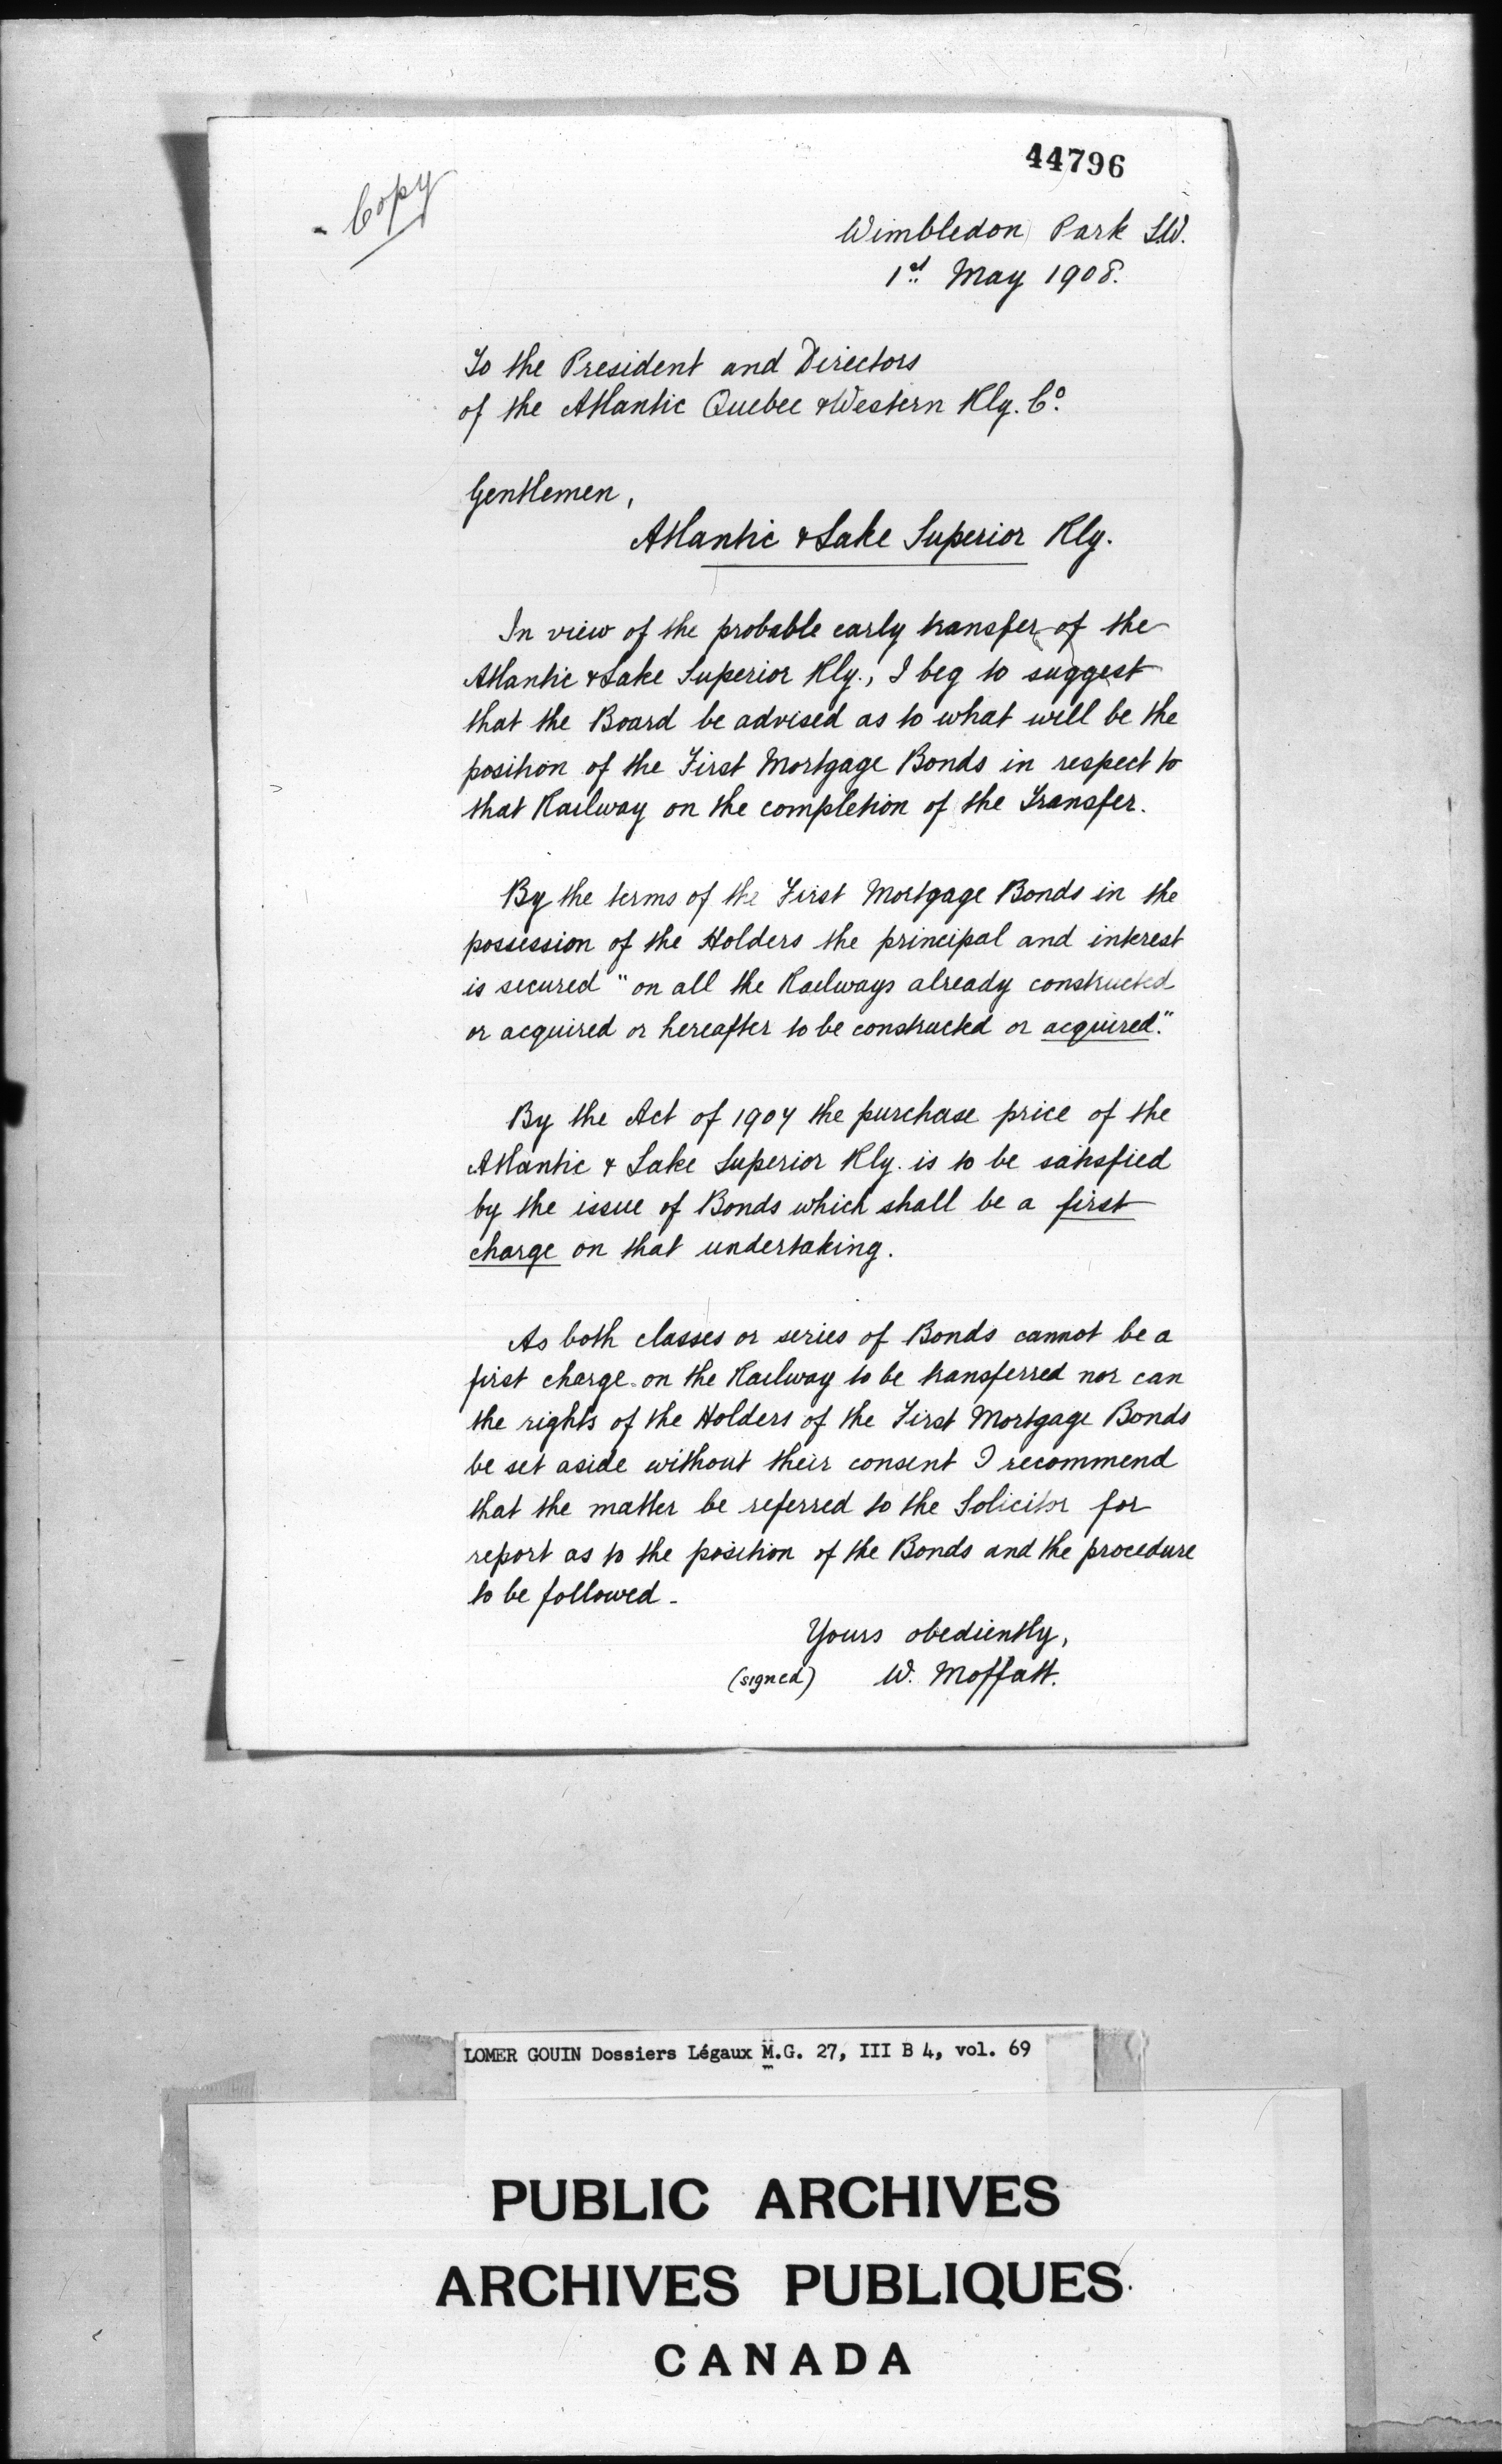 44796
Copy
Wimbledon Park S.W.
1st May 1908.
To the President and Directors
of the Atlantic Quebec & Western Rly. Co.
Gentlemen,
Atlantic & Lake Superior Rly.
In view of the probable early transfer of the
Atlantic & Lake Superior Rly., I beg to suggest
that the Board be advised as to what will be the
position of the First Mortgage Bonds in respect to
that Railway on the completion of the Transfer.
By the terms of the First Mortgage Bonds in the
possession of the Holders the principal and interest
is secured "on all the Railways already constructed
or acquired or hereafter to be constructed or acquired."
By the Act of 1907 the purchase price of the
Atlantic & Lake Superior Rly. is to be satisfied
by the issue of Bonds which shall be a first
charge on that undertaking.
As both classes or series of Bonds cannot be a
first charge on the Railway to be transferred nor can
the rights of the Holders of the First Mortgage Bonds
be set aside without their consent I recommend
that the matter be referred to the Solicitor for
report as to the position of the Bonds and the procedure
to be followed -
Yours obediently,
(signed) W. Moffatt.
LOMER GOUIN Dossiers Légaux M.G. 27, III B 4, vol. 69
PUBLIC ARCHIVES
ARCHIVES PUBLIQUES
CANADA